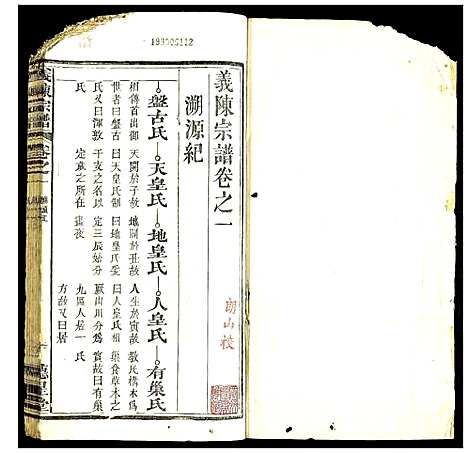 193006112
義陳宗譜卷之一
溯源紀
盤古氏—天皇氏—地皇氏—人皇氏—有巢氏
相傳首出御
世者曰盤古
氏又曰渾敦
氏
天開於子故
曰天皇氏
干支之名以
定歲之所在
地闢於丑故
曰地皇氏爰
定三辰始分
晝夜
人生於寅故
曰人皇氏相
厥山川分為
九區人居一
方故又曰居
教民構木為
巢食草木之
實故曰有巢
氏
朗山校
義陳宗譜
卷之一
德星堂